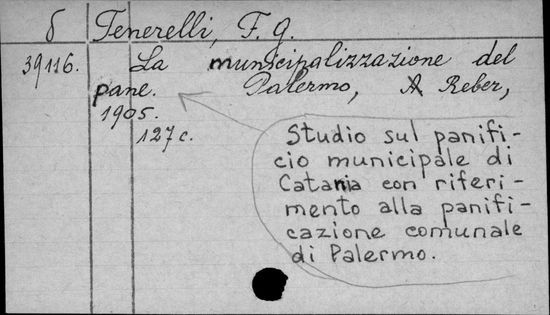 6 Tenerelli, F. G.
39116. La municipalizzazione del
pane. Palermo, A Reber,
1905.
127 c.
Studio sul panifi-
cio municipale di
Catania con riferi-
mento alla panifi-
cazione comunale
di Palermo.